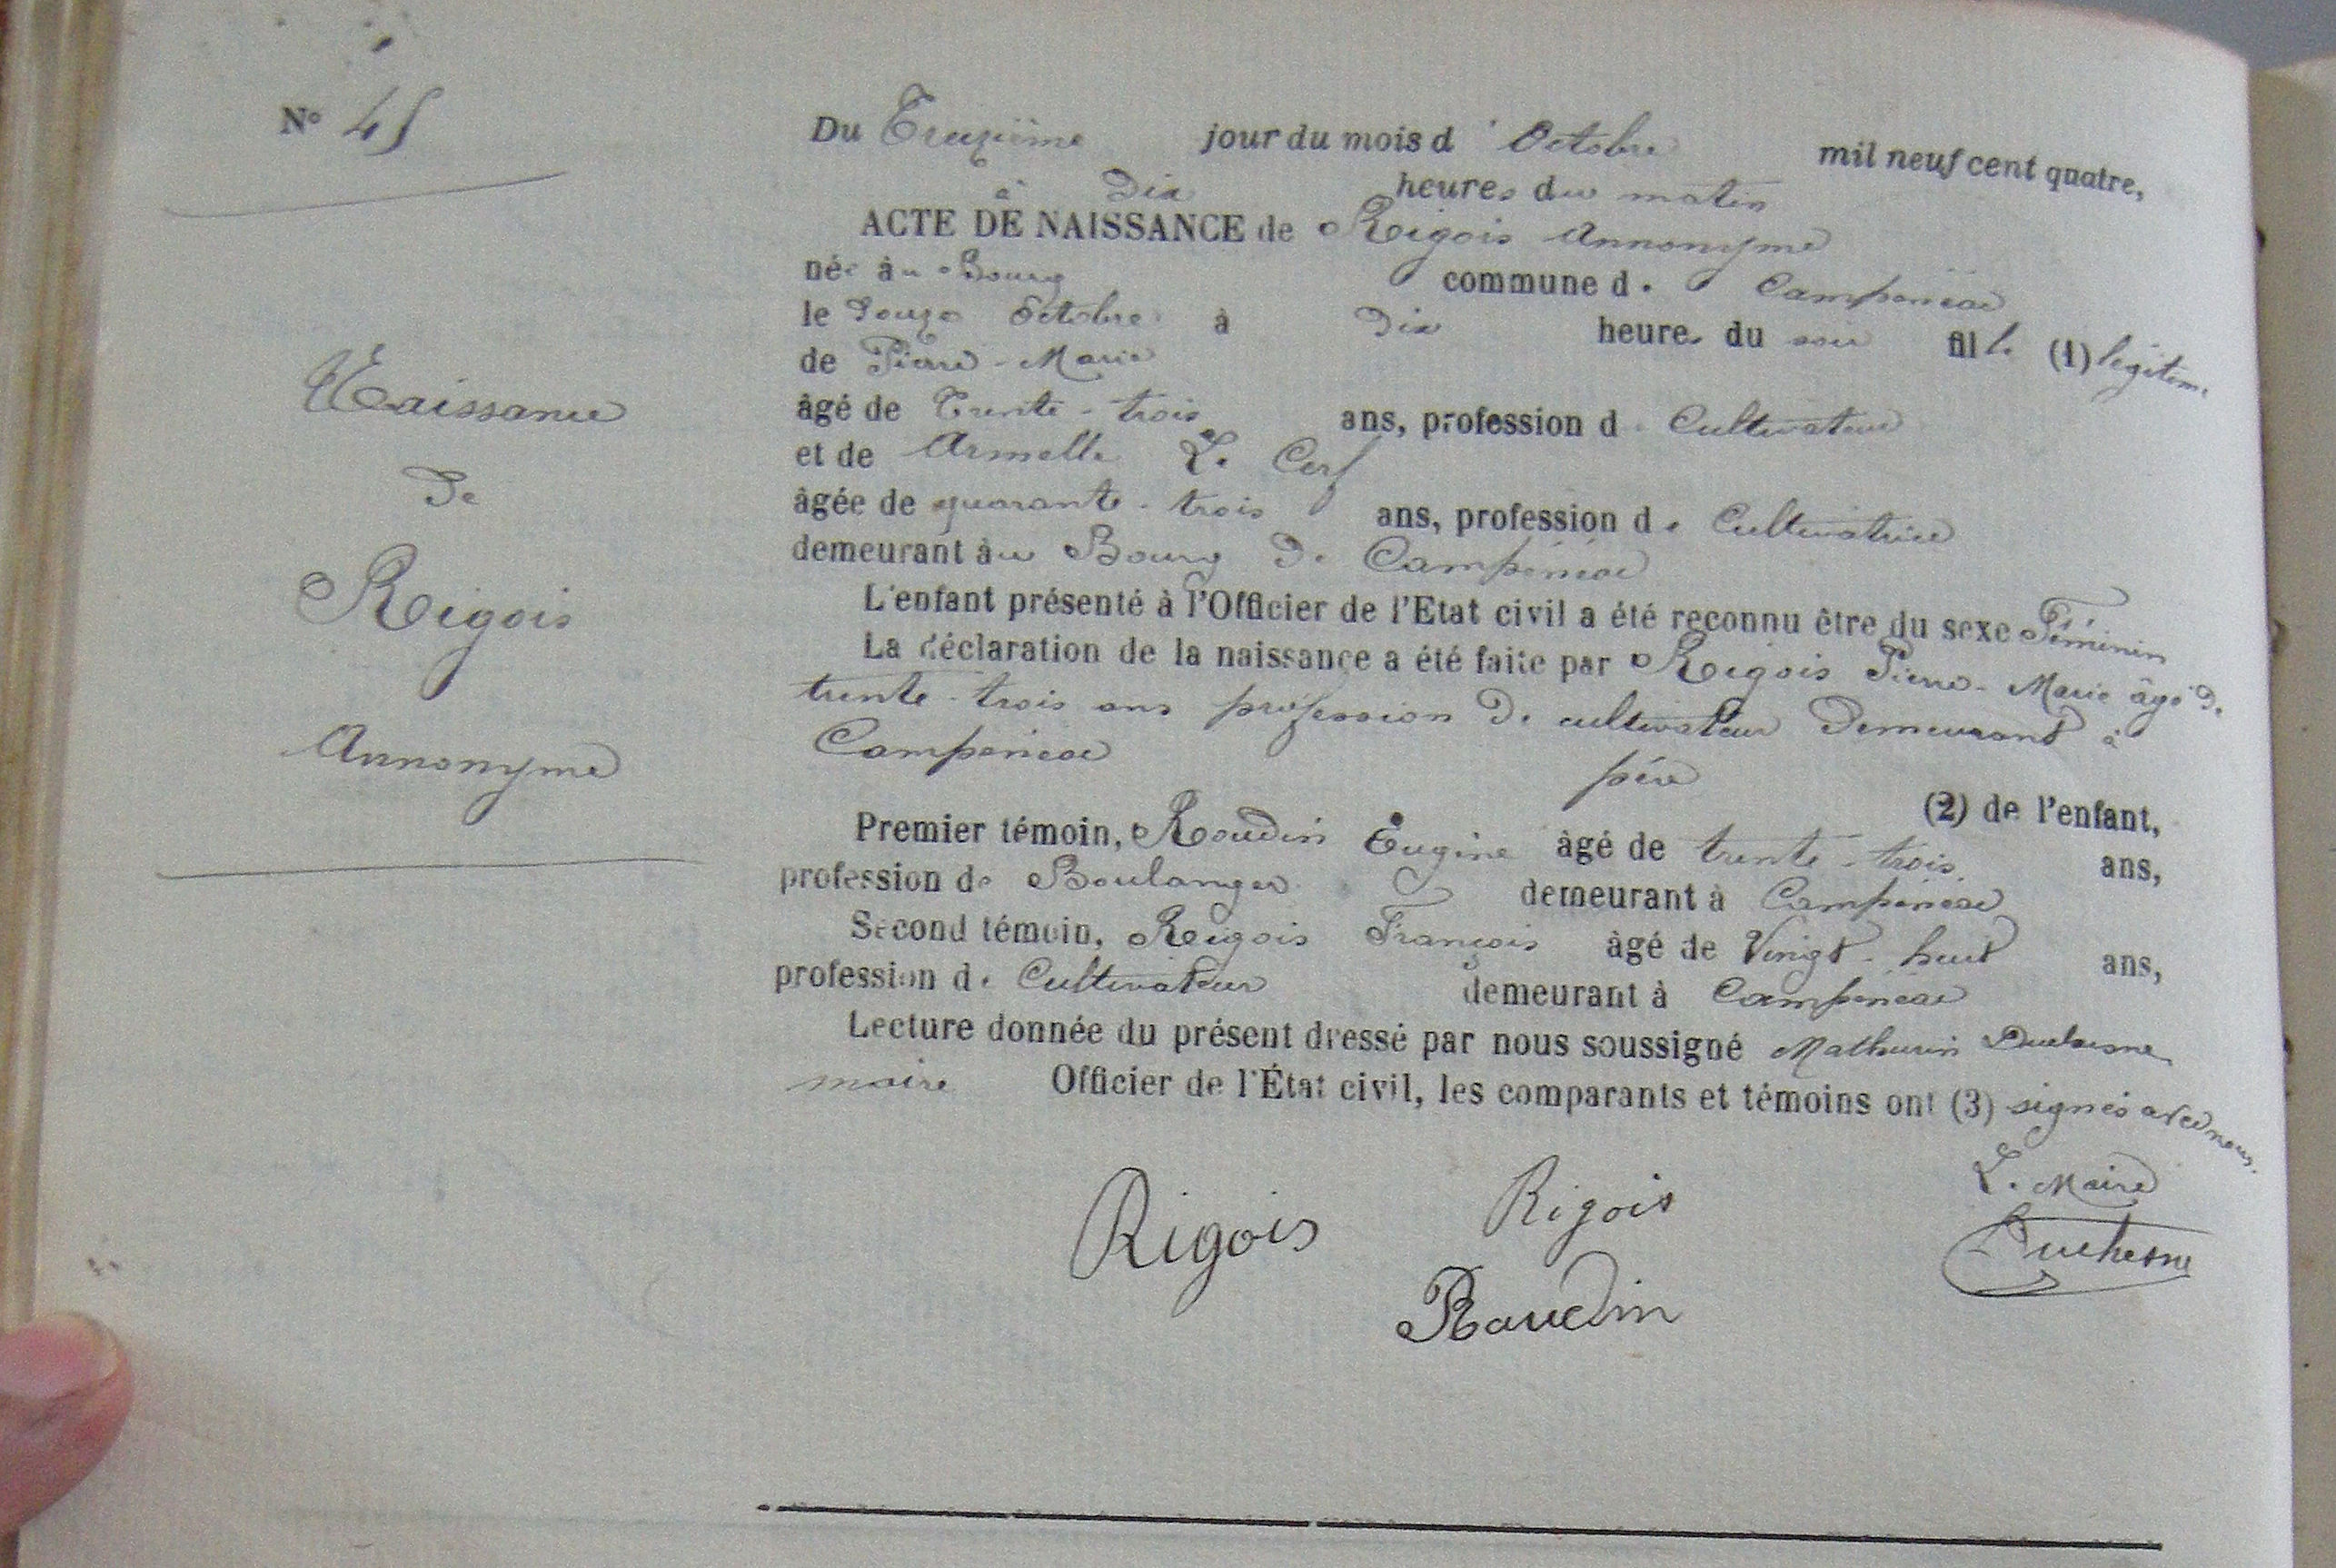 N° 45
Naissance
de
Rigois
Annonyme
Du Treizième jour du mois d'Octobre mil neuf cent quatre,
à Dix heures du matin
ACTE DE NAISSANCE de Rigois Annonyme
née au Bourg commune de Campénéac
le Douze Octobre à Dix heures du soir fille (1) légitime
de Pierre-Marie
âgé de Trente-trois ans, profession de Cultivateur
et de Armelle Le Cerf
âgée de quarante-trois ans, profession de Cultivatrice
demeurant au Bourg de Campénéac
L'enfant présenté à l'Officier de l'Etat civil a été reconnu être du sexe Féminin
La déclaration de la naissance a été faite par Rigois Pierre-Marie âgé de
trente-trois ans profession de cultivateur demeurant à
Campénéac père (2) de l'enfant,
Premier témoin, Raudin Eugène âgé de trente-trois ans,
profession de Boulanger demeurant à Campénéac
Second témoin, Rigois François âgé de Vingt-huit ans,
profession de Cultivateur demeurant à Campénéac
Lecture donnée du présent dressé par nous soussigné Mathurin Duchesne
maire Officier de l'État civil, les comparants et témoins ont (3) signés avec nous.
Rigois Rigois Le Maire
Raudin Duchesne